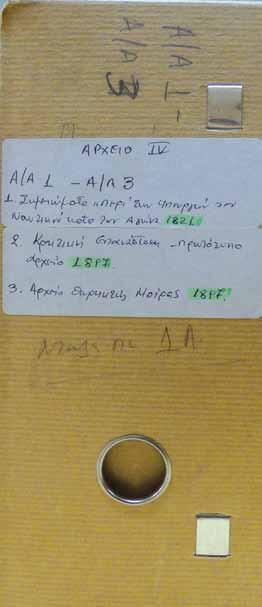 Α/Α 1 -
Α/Α 3
ΑΡΧΕΙΟ IV
Α/Α 1 - Α/Α 3
1. Σημειώματα περί των υπουργών των
Ναυτικών κατά τον Αγώνα 1821.
2. Κρητική Επανάσταση - πρωτότυπο
αρχείο 1897.
3. Αρχείο Ευρητικής Μοίρας 1897.
1Α